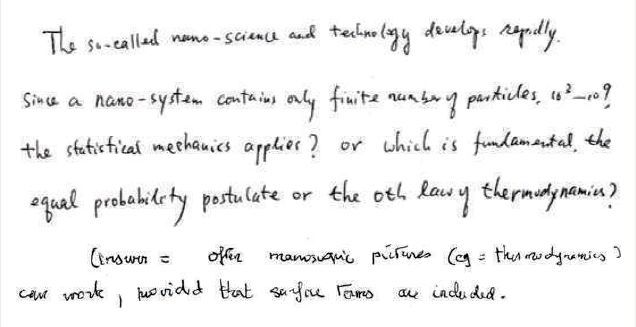 The so-called nano-science and technology develops rapidly.
Since a nano-system contains only finite number of particles, 10²—10⁹,
the statistical mechanics applies? or which is fundamental, the
equal probability postulate or the 0th law of thermodynamics?
(Answer = often macroscopic pictures (eg = thermodynamics)
can work, provided that surface terms are included.